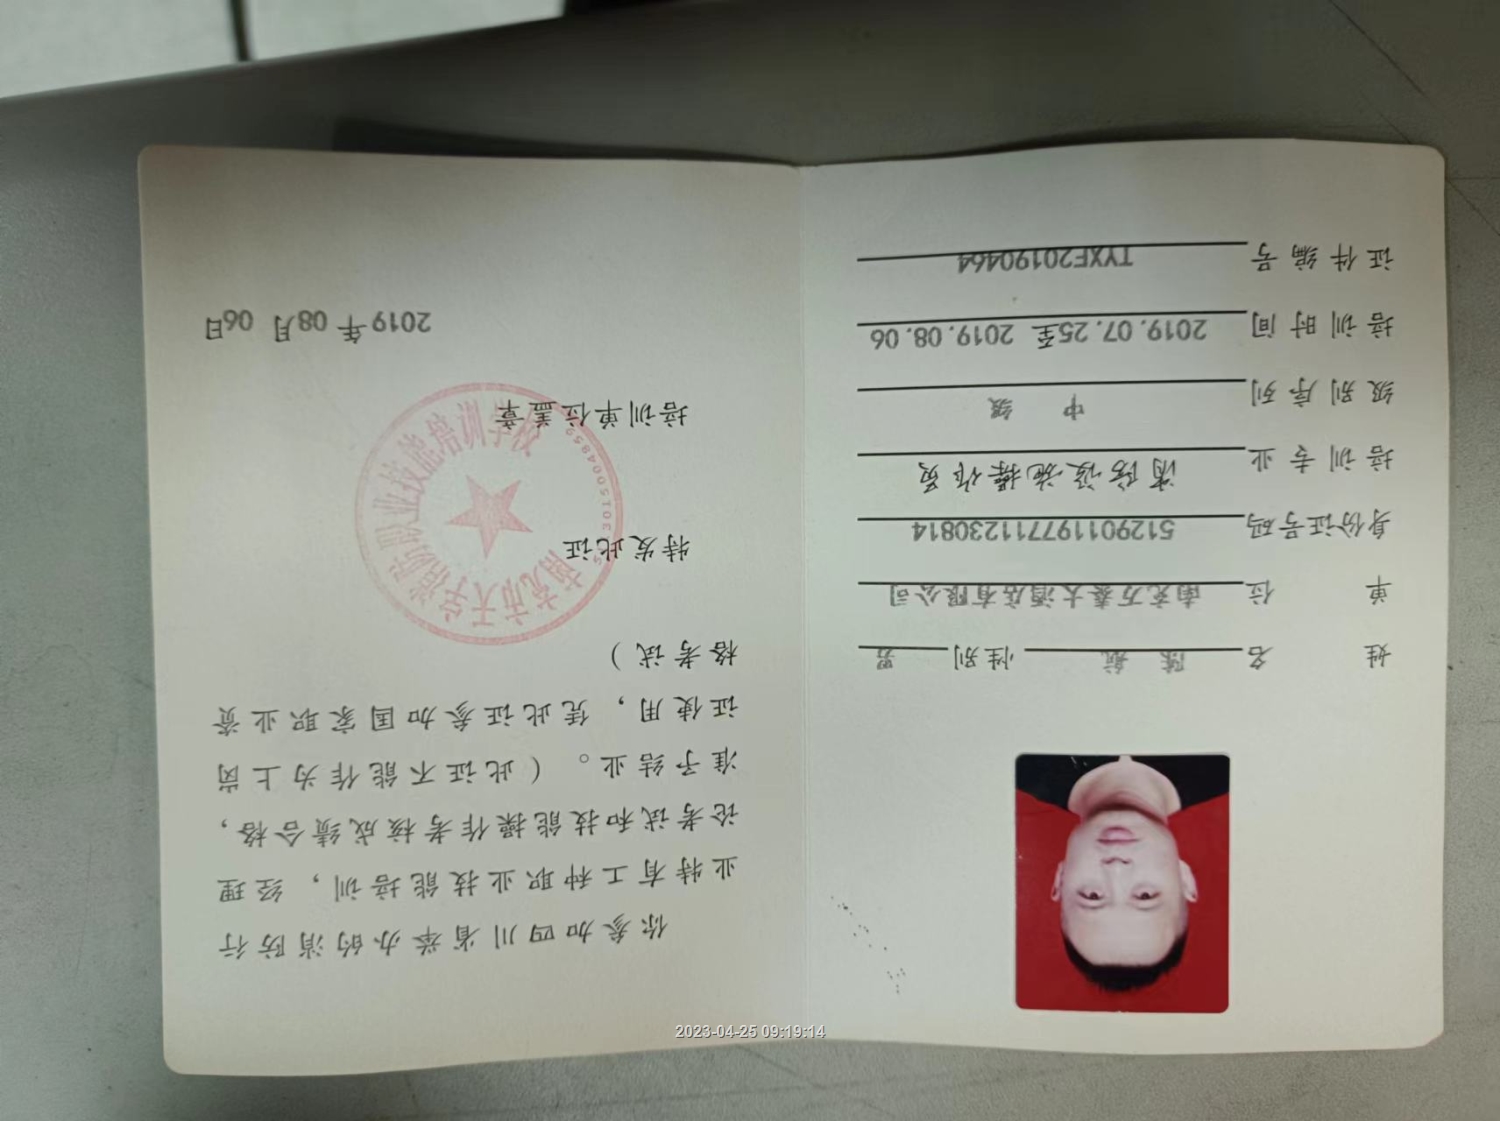 姓名 陈航 性别 男
单位 南充万泰大酒店有限公司
身份证号码 512901197711230814
培训专业 消防设施操作员
级别序列 中级
培训时间 2019.07.25至 2019.08.06
证件编号 TYXF20190464
你参加四川省举办的消防行
业特有工种职业技能培训，经理
论考试和技能操作考核成绩合格，
准予结业。（此证不能作为上岗
证使用，凭此证参加国家职业资
格考试）
特发此证
培训单位盖章
南充市天宇消防职业技能培训学校
2019年08月06日
2023-04-25 09:19:14